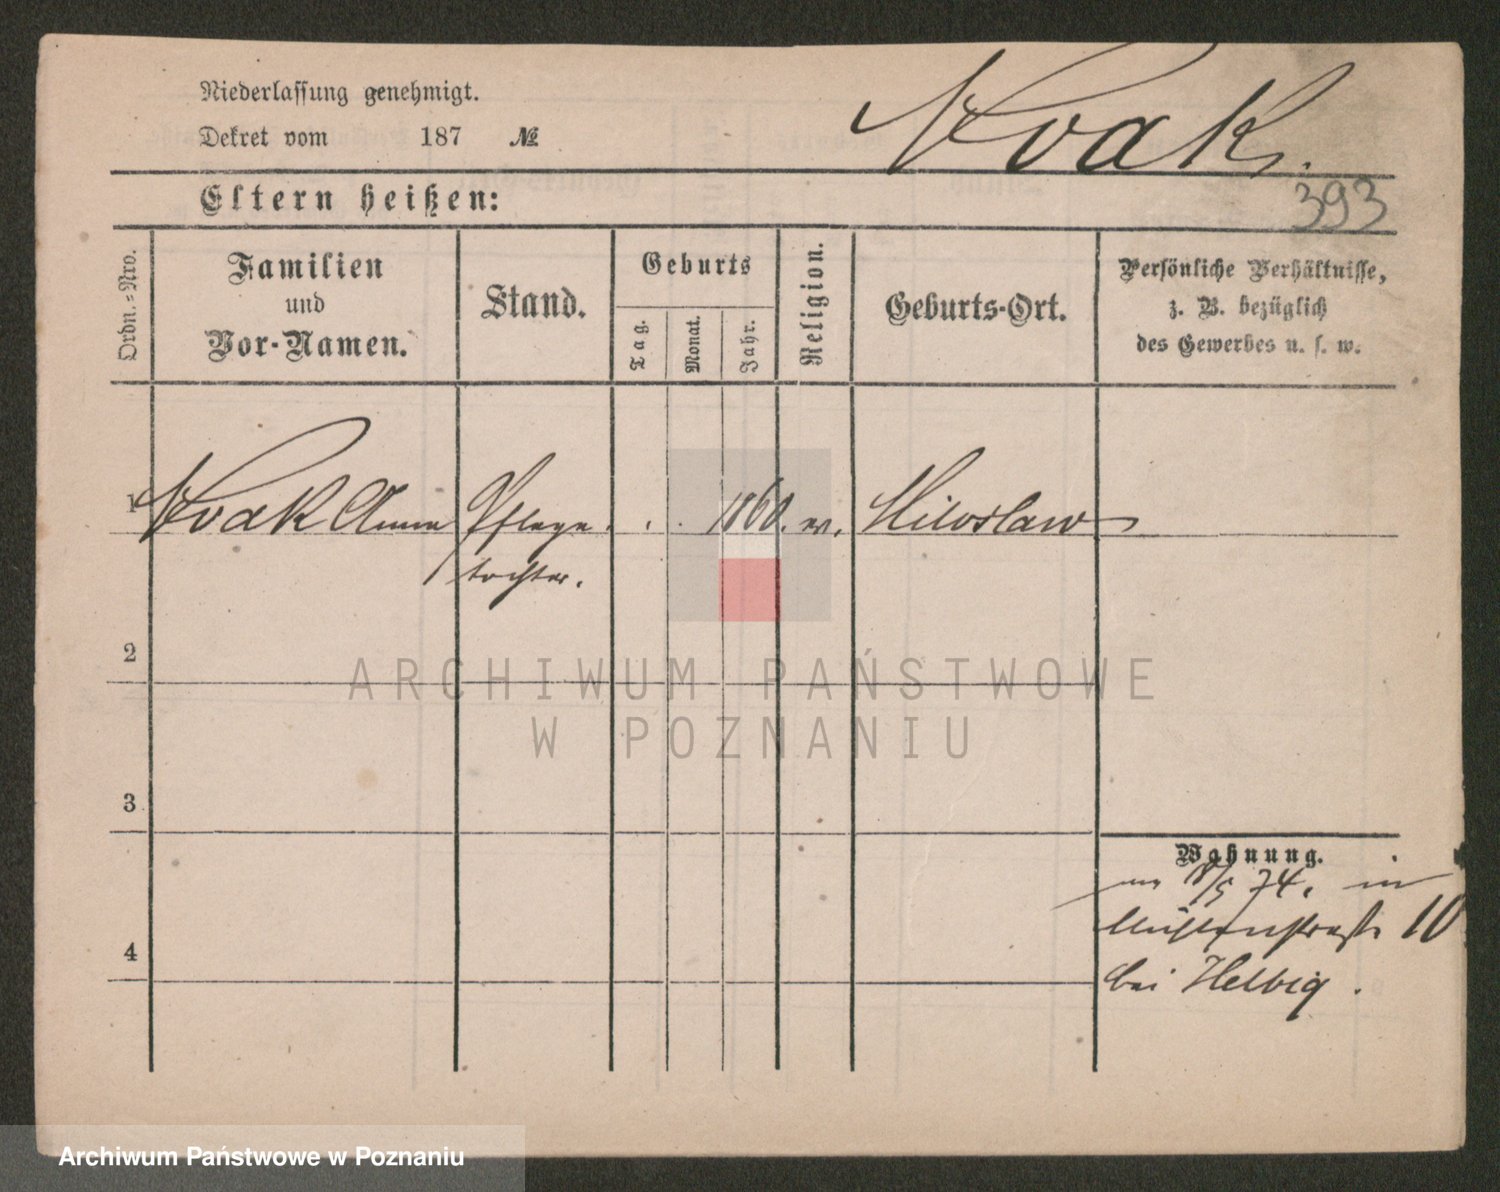 Niederlassung genehmigt.
Dekret vom 187 №
Noak.
Eltern heißen:
393
Ordn.-Nro.
Familien
und
Vor-Namen.
Stand.
Geburts
Tag.
Monat.
Jahr.
Religion.
Geburts-Ort.
Persönliche Verhältnisse,
z. B. bezüglich
des Gewerbes u. s. w.
1 Noak Anna Pflege . . . 1860. ev. Miloslaw
tochter.
2
3
4
Wohnung.
8/5 74. in
10
bei Helbig.
ARCHIWUM PAŃSTWOWE
W POZNANIU
Archiwum Państwowe w Poznaniu